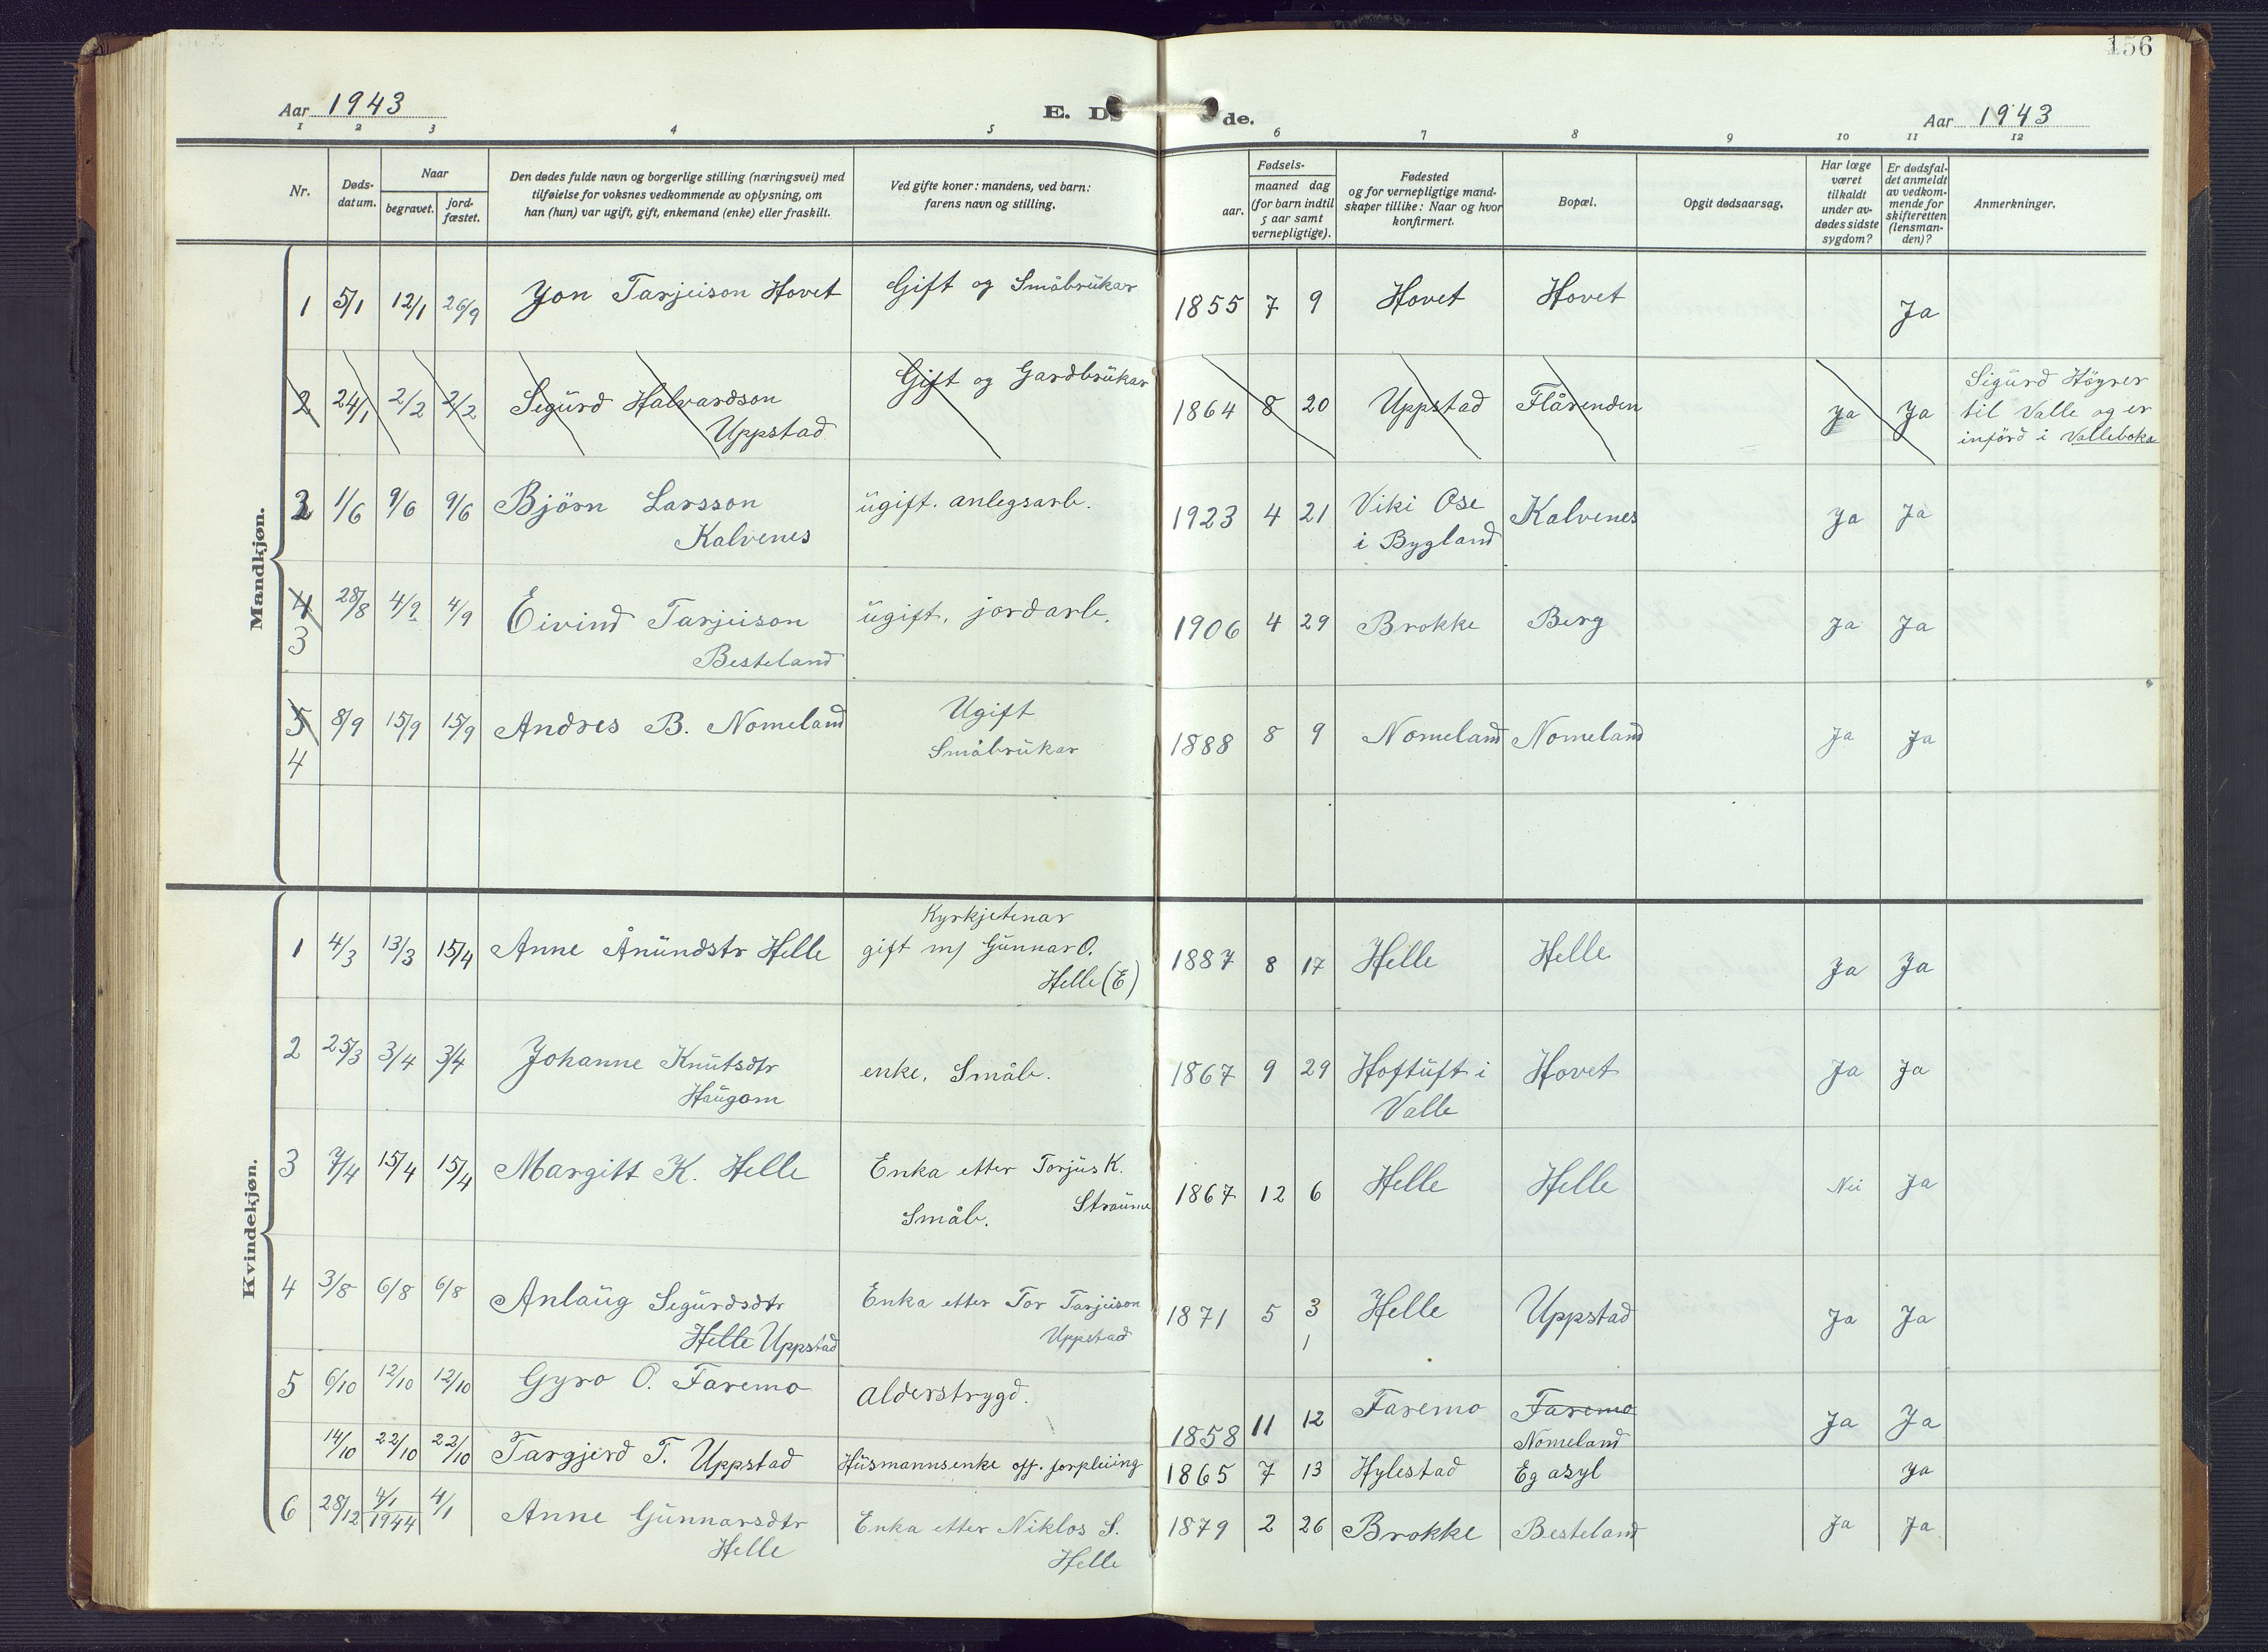 156
Aar 1943
E. Dø de.
Aar 1943
1 2 3 4 5 6 7 8 9 10 11 12
Nr.
Døds-
datum.
Naar
begravet.
jord-
fæstet.
Den dødes fulde navn og borgerlige stilling (næringsvei) med
tilføielse for voksnes vedkommende av oplysning, om
han (hun) var ugift, gift, enkemand (enke) eller fraskilt.
Ved gifte koner: mandens, ved barn:
farens navn og stilling.
Fødsels-
aar.
maaned dag
(for barn indtil
5 aar samt
vernepligtige).
Fødested
og for vernepligtige mand-
skaper tillike: Naar og hvor
konfirmert.
Bopæl.
Opgit dødsaarsag.
Har læge
været
tilkaldt
under av-
dødes sidste
sygdom?
Er dødsfal-
det anmeldt
av vedkom-
mende for
skifteretten
(lensman-
den)?
Anmerkninger.
Mandkjøn.
1 5/1 12/1 26/9 Jon Tarjeison Hovet Gift og Småbrükar 1855 7 9 Hovet Hovet Ja
2 24/1 2/2 2/2 Sigürd Halvardson Gift og Gardbrükar 1864 8 20 Uppstad Flårenden Ja Ja Sigürd Höyrer
Uppstad til Valle og er
införd i Valleboka
2 1/6 9/6 9/6 Björn Larsson ügift. anlegsarb. 1923 4 21 Viki Ose Kalvenes Ja Ja
Kalvenes i Bygland
4 28/8 4/9 4/9 Eivind Tarjeison ügift, jordarb. 1906 4 29 Brokke Berg Ja Ja
3 Besteland
5 8/9 15/9 15/9 Andres B. Nomeland Ugift 1888 8 9 Nomeland Nomeland Ja Ja
4 Småbrükar
Kvindekjøn.
Kyrkjetenar
1 4/3 13/3 15/4 Anne Ånündstr Helle gift m/ Günnar O. 1887 8 17 Helle Helle Ja Ja
Helle (E)
2 25/3 3/4 3/4 Johanne Knütsdtr enke, Småb. 1867 9 29 Hoftüft i Hovet Ja Ja
Haügom Valle
3 7/4 15/4 15/4 Margitt K. Helle Enka etter Torjüs K. 1867 12 6 Helle Helle Nei Ja
Straüme
Småb.
4 3/8 6/8 6/8 Anlaüg Sigürdsdtr Enka etter Tor Tarjeison 1871 5 3 Helle Uppstad Ja Ja
Helle Uppstad Uppstad 1
5 6/10 12/10 12/10 Gyro O. Faremo Alderstrygd. 1858 11 12 Faremo Faremo Ja Ja
Nomeland
14/10 22/10 22/10 Targjerd T. Uppstad Hüsmannsenke off. forpleiing 1865 7 13 Hylestad Eg asyl Ja
6 28/12 4/1 4/1 Anne Günnarsdtr Enka etter Niklos S. 1879 2 26 Brokke Besteland Ja Ja
1944 Helle Helle